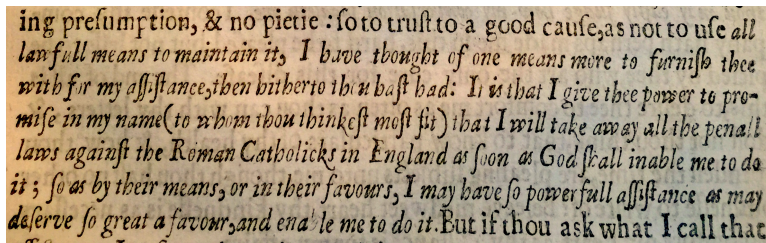 ing preſumption, & no pietie : ſo to truſt to a good cauſe, as not to uſe all
lawfull means to maintain it, I have thought of one means more to furniſh thee
with for my aſſiſtance, then hitherto thou haſt had: It is that I give thee power to pro-
miſe in my name (to whom thou thinkeſt moſt fit) that I will take away all the penall
laws againſt the Roman Catholicks in England as ſoon as God ſhall inable me to do
it ; ſo as by their means, or in their favours, I may have ſo powerfull aſſiſtance as may
deſerve ſo great a favour, and enable me to do it. But if thou ask what I call that